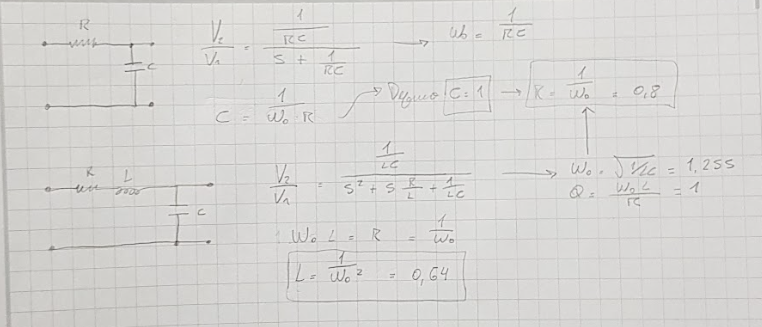 R
C
V₂/V₁ = (1/RC) / (S + 1/RC) → Wb = 1/RC
C = 1/(W₀·R) → C = 1 → R = 1/W₀ = 0,8
R L
C
V₂/V₁ = (1/LC) / (S² + S R/L + 1/LC) → W₀ = √1/LC = 1,255
Q = W₀L/R = 1
W₀ L = R = 1/W₀
L = 1/W₀² = 0,64